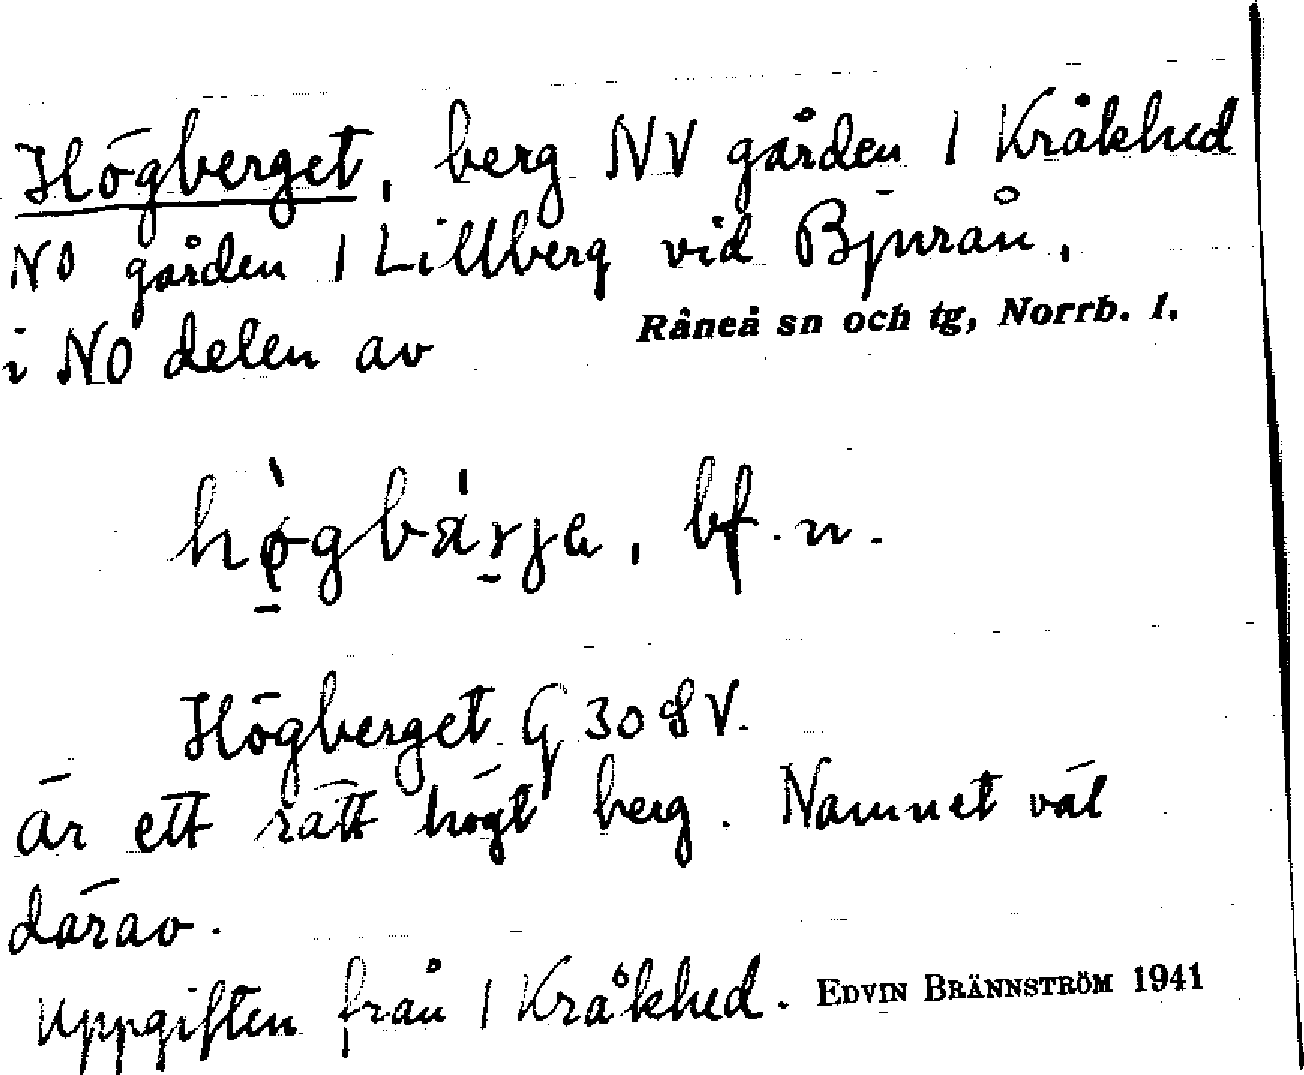 Högberget, berg NV gården 1 Kråkhed
NO gården 1 Lillberg vid Bjurån,
i NO delen av Råneå sn och tg, Norrb. l.
bf. n.
Högberget G 30 SV.
är ett rätt högt berg. Namnet väl
därav.
Uppgiften från 1 Kråkhed. EDVIN BRÄNNSTRÖM 1941